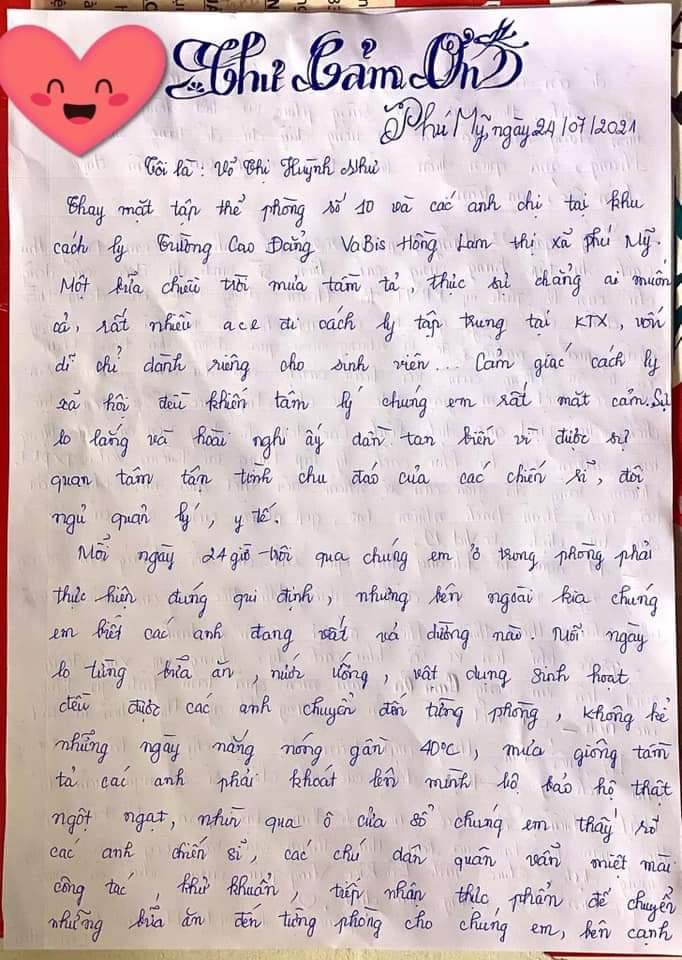 Thư Cảm Ơn
Phú Mỹ, ngày 24/07/2021
Tôi là: Võ Thị Huỳnh Như
Thay mặt tập thể phòng số 10 và các anh chị tại khu
cách ly Trường Cao Đẳng VaBis Hồng Lam thị xã phú Mỹ.
Một bữa chiều trời mưa tầm tả, thực sự chẳng ai muốn
cả, rất nhiều ace đi cách ly tập trung tại KTX, vốn
dĩ chỉ dành riêng cho sinh viên... Cảm giác cách ly
xã hội đều khiến tâm lý chúng em rất mặt cảm. Sự
lo lắng và hoài nghi ấy dần tan biến vì được sự
quan tâm tận tình chu đáo của các chiến sĩ, đội
ngủ quản lý, y tế.
Mỗi ngày 24 giờ trôi qua chúng em ở trong phòng phải
thực hiện đúng qui định, nhưng bên ngoài kia chúng
em biết các anh đang vất vả dường nào. Mỗi ngày
lo từng bữa ăn, nước uống, vật dụng sinh hoạt
đều được các anh chuyển đến từng phòng, không kể
những ngày nắng nóng gần 40°C, mưa giông tầm
tả các anh phải khoát lên mình bộ bảo hộ thật
ngột ngạt, nhìn qua ô cửa sổ chúng em thấy rõ
các anh chiến sĩ, các chú dân quân vẫn miệt mài
công tác, khử khuẩn, tiếp nhận thực phẩn để chuyển
những bữa ăn đến từng phòng cho chúng em, bên cạnh